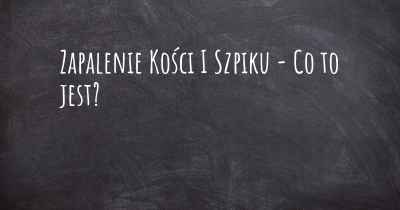 Zapalenie Kości I Szpiku - Co to
jest?